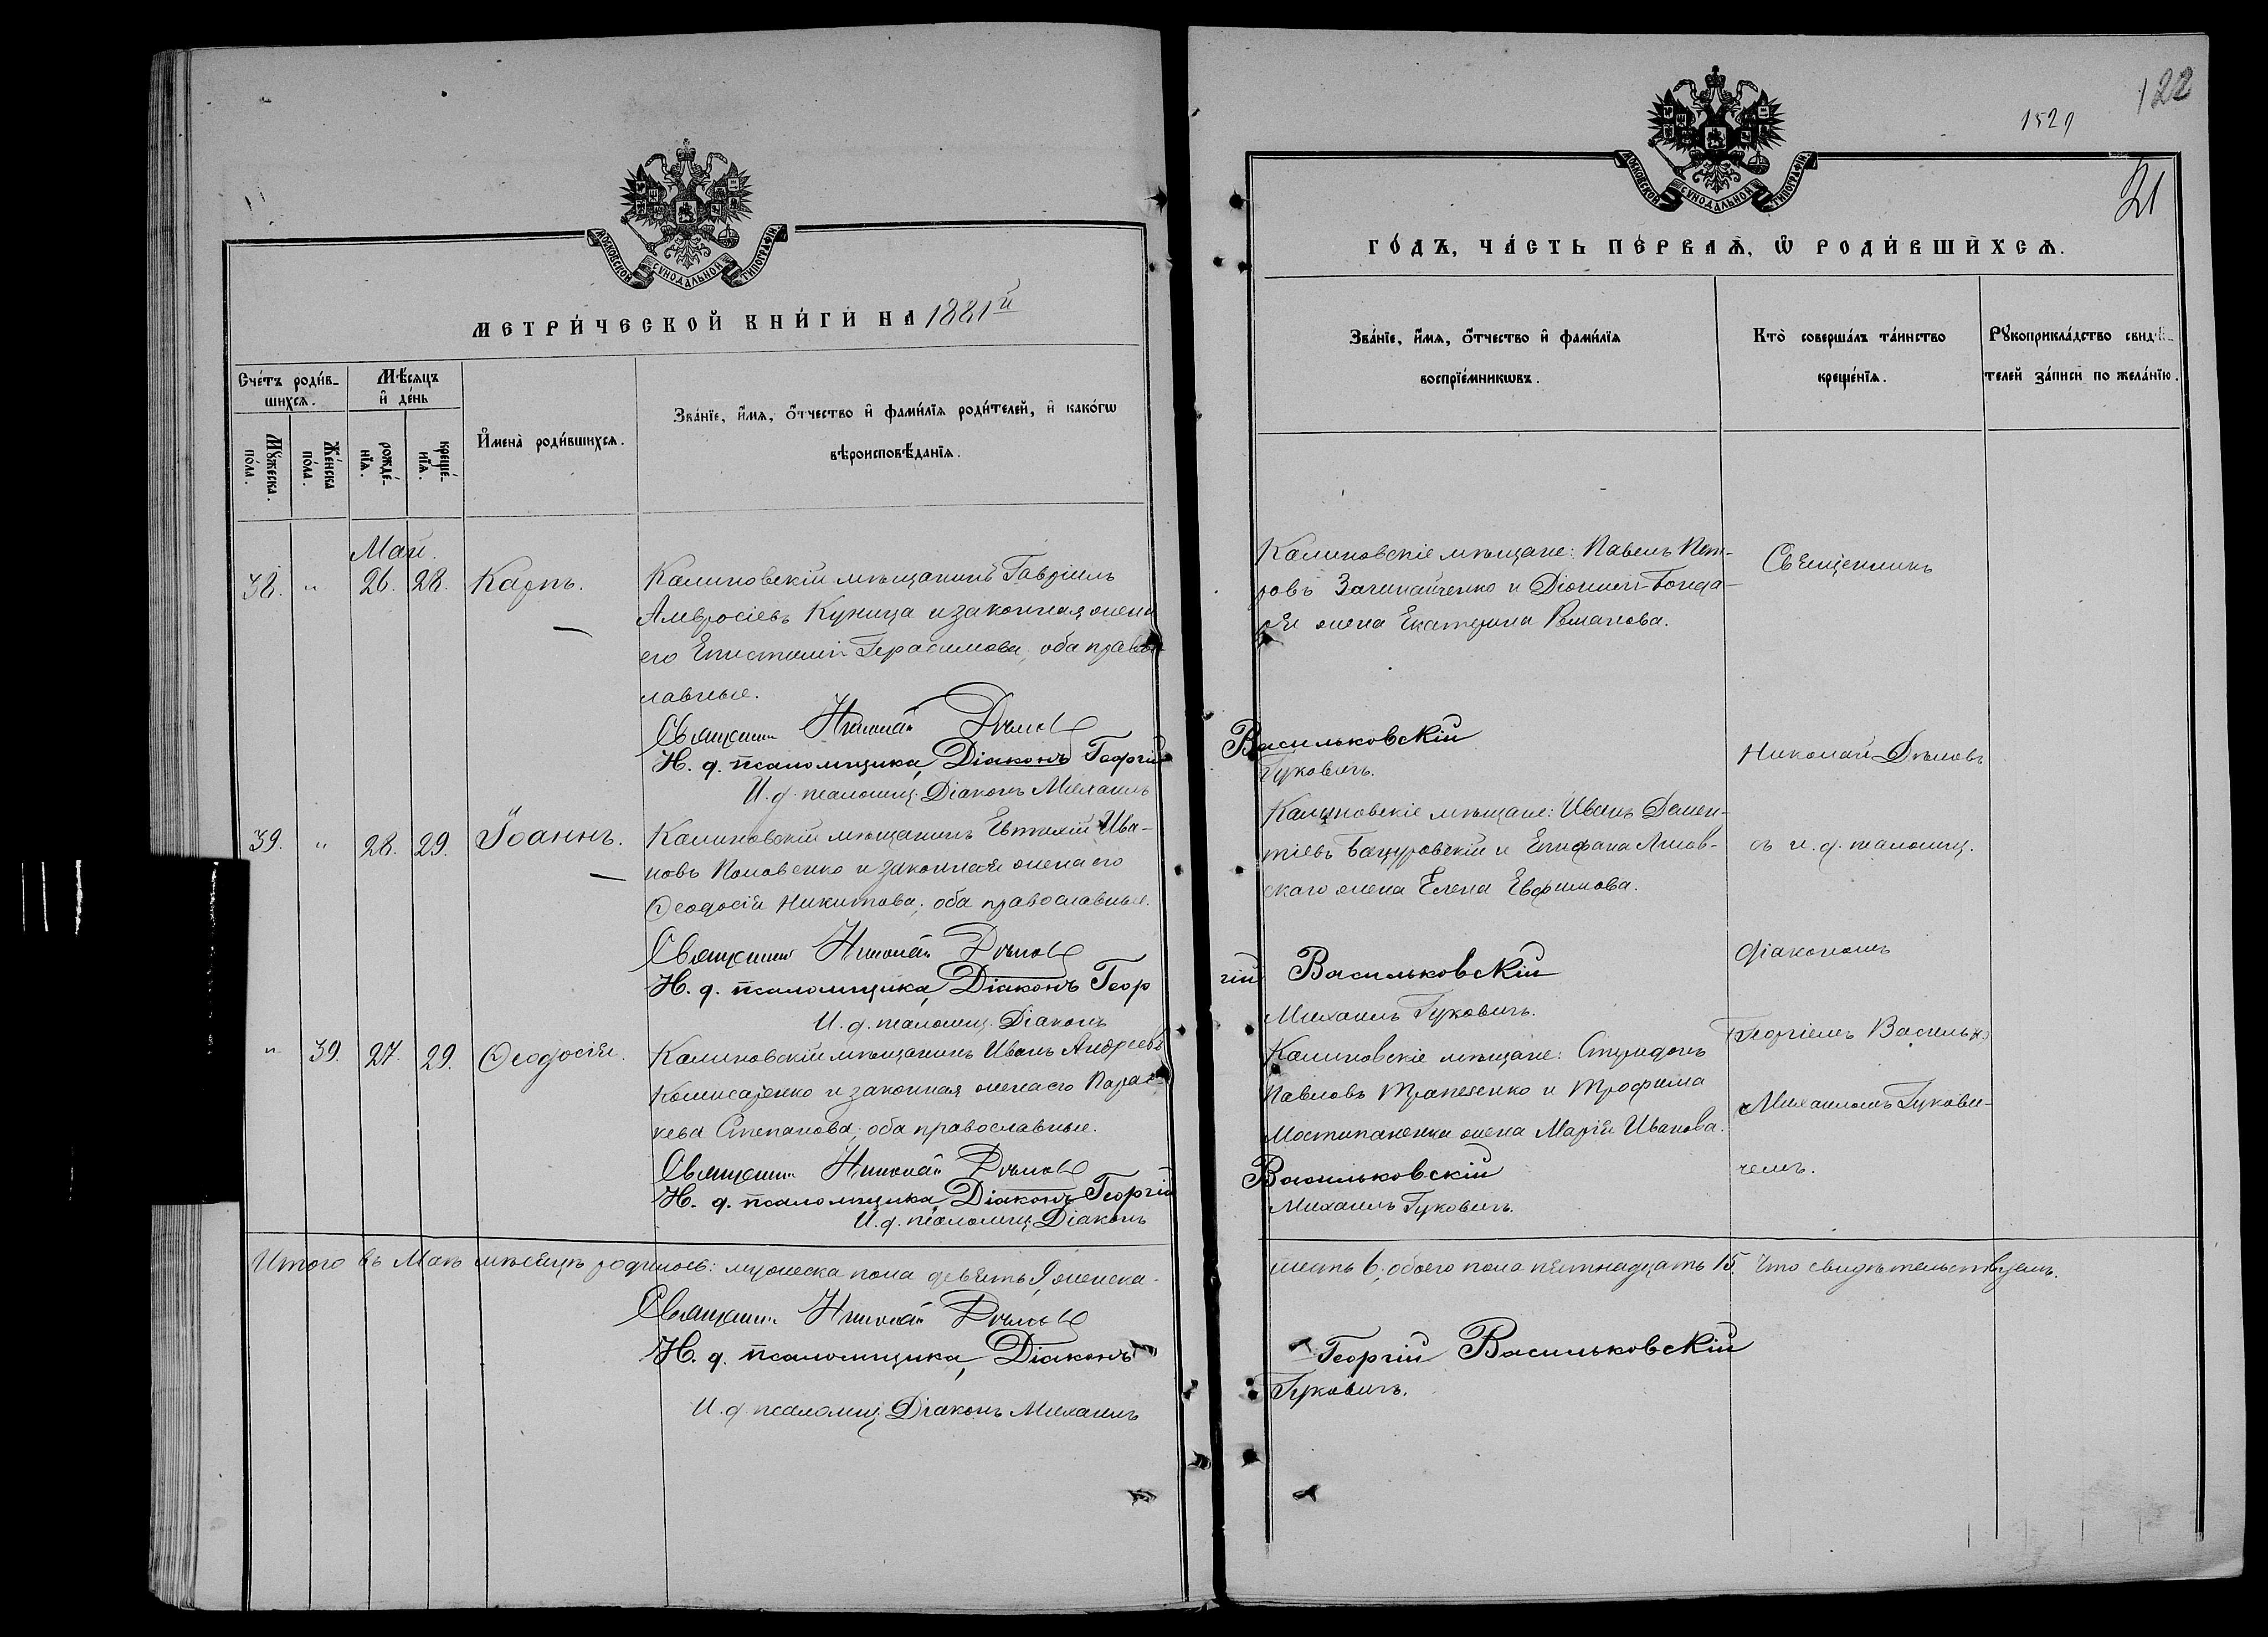 МОСКОВСКОЙ СѴНОДАЛЬНОЙ ТИПОГРАФІИ.
МЕТРИ́ЧЕСКОЙ КНИ́ГИ НА 1881й
Сче́тъ роди́в-
шихсѧ.
Мѣ́сяцъ
и҆ де́нь
Мꙋ́жеска
по́ла.
Же́нска
по́ла.
рожде́-
нїѧ.
креще́-
нїѧ.
И҆мена̀ роди́вшихсѧ.
Зва́нїе, и҆́мѧ, ѻ҆́тчество и҆ фами́лїѧ роди́телей, и҆ како́гѡ
вѣроисповѣ́данїѧ.
Май.
38. " 26. 28. Карпъ.
Калиновскій мѣщанинъ Гавріилъ
Амвросіевъ Куница и законная жена
его Епистимія Герасимова, оба право-
славные.
Священникъ Николай Дѣмовъ
И. д. псаломщика, Діаконъ Георгій
И. д. псаломщ. Діаконъ Михаилъ
39. " 28. 29. Іоаннъ.
Калиновскій мѣщанинъ Евтихій Ива-
новъ Поповенко и законная жена его
Ѳеодосія Никитова, оба православные.
Священникъ Николай Дѣмовъ
И. д. псаломщика, Діаконъ Геор
И. д. псаломщ. Діаконъ
" 39. 27. 29. Ѳеодосія.
Калиновскій мѣщанинъ Иванъ Андреевъ
Комисаренко и законная жена его Парас-
кева Степанова, оба православные.
Священникъ Николай Дѣмовъ
И. д. псаломщика, Діаконъ Георгій
И. д. псаломщ. Діаконъ
Итого въ Маѣ мѣсяцѣ родилось: мужеска пола девять 9, женска-
Священникъ Николай Дѣмовъ
И. д. псаломщика, Діаконъ
И. д. псаломщ. Діаконъ Михаилъ
122
1529
21
МОСКОВСКОЙ СѴНОДАЛЬНОЙ ТИПОГРАФІИ.
ГО́ДЪ, ЧА́СТЬ ПЕ́РВАѦ, Ѡ҆ РОДИ́ВШИХСѦ.
Зва́нїе, и҆́мѧ, ѻ҆́тчество и҆ фами́лїѧ
воспрїе́мникѡвъ.
Кто̀ соверша́лъ та́инство
креще́нїѧ.
Рꙋкоприкла́дство свидѣ́-
телей за́писи по жела́нїю.
Калиновскіе мѣщане: Павелъ Пет-
ровъ Зачинайченко и Діонисія Бонда-
ря жена Екатерина Романова.
Васильковскій
Гуковичъ.
Калиновскіе мѣщане: Иванъ Демен-
тіевъ Бацуровскій и Епифана
ского жена Елена Евфимова.
гій Васильковскій
Михаилъ Гуковичъ.
Калиновскіе мѣщане: Спиридонъ
Павловъ Трапезенко и Трофима
Мостипаненка жена Марія Иванова.
Васильковскій
Михаилъ Гуковичъ.
Священникъ
Николай Дѣмовъ
съ и. д. псаломщ.
діакономъ
Георгіемъ Васильк.
Михаиломъ Гукови-
чемъ.
шесть 6, обоего пола пятнадцать 15. Что свидѣтельствуемъ.
Георгій Васильковскій
Гуковичъ.